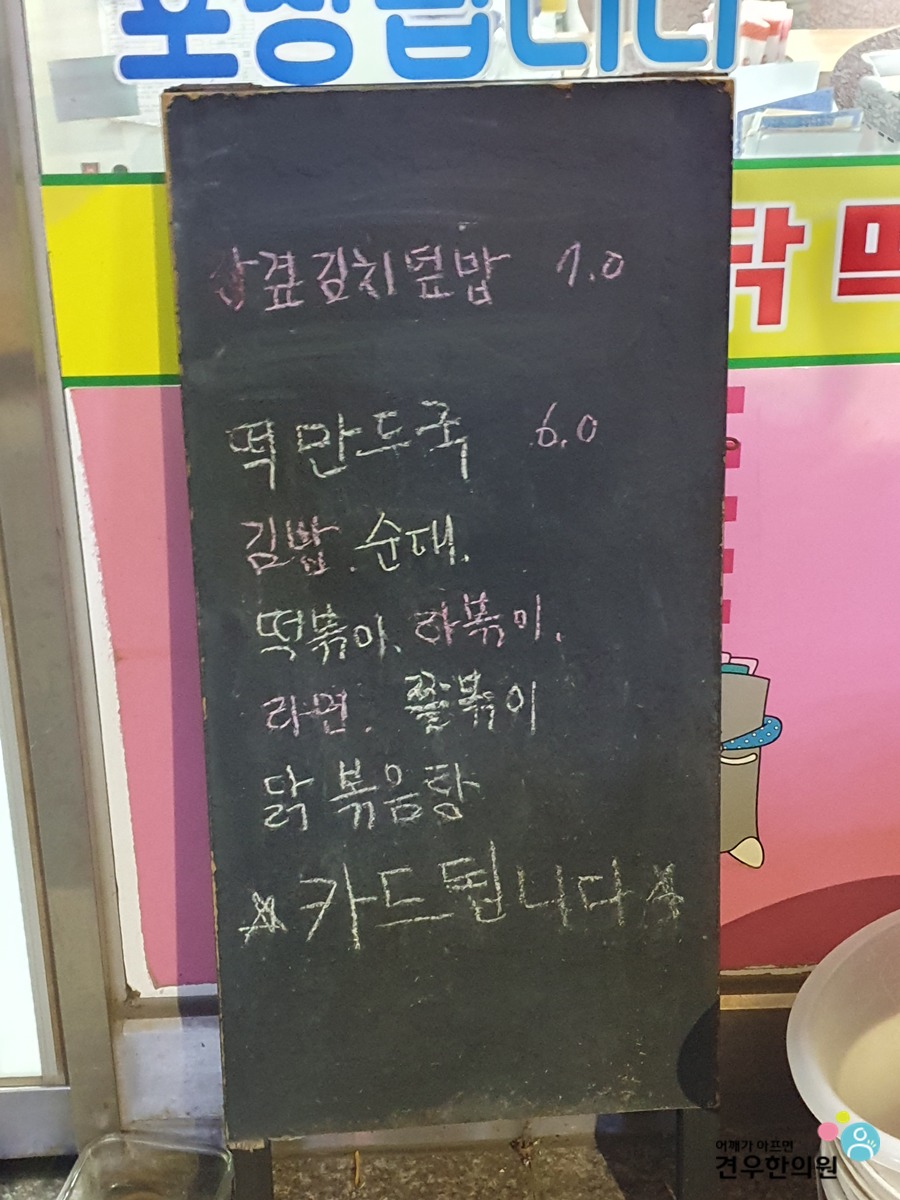 포장됩니다
닭 떡
삼겹김치덮밥 7.0
떡만두국 6.0
김밥. 순대.
떡볶이. 라볶이.
라면. 쫄볶이
닭볶음탕
☆카드됩니다☆
어깨가 아프면
견우한의원